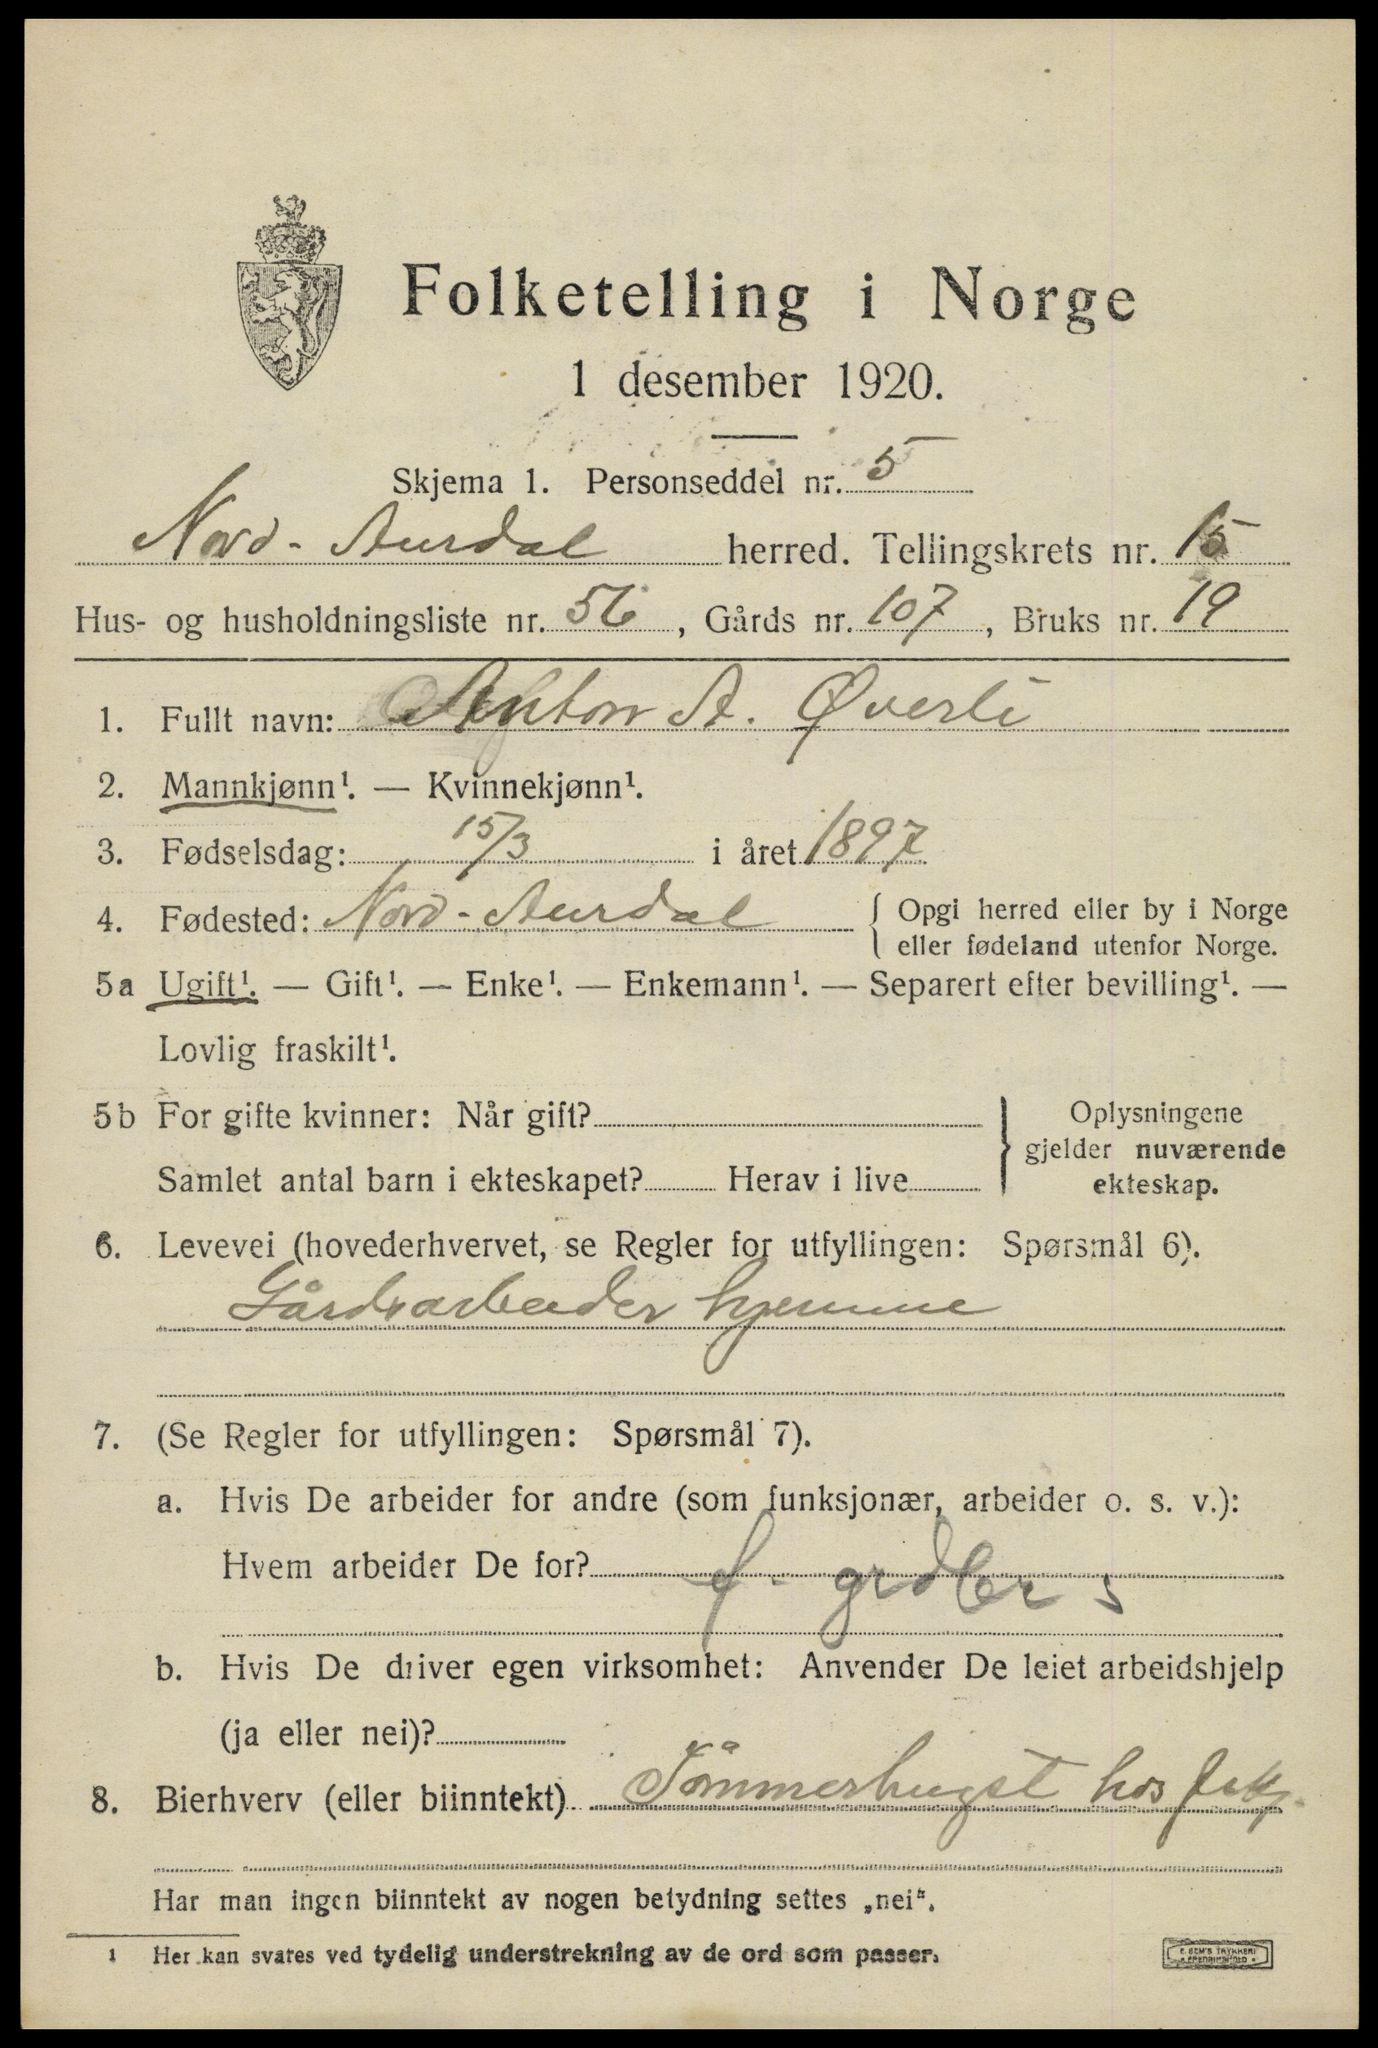 Folketelling i Norge
1 desember 1920.
Skjema 1. Personseddel nr. 5
Nord-Aurdal herred. Tellingskrets nr. 15
Hus- og husholdningsliste nr. 56, Gårds nr. 107, Bruks nr. 19
1. Fullt navn: Anton A. Øverli
2. Mannkjønn¹. — Kvinnekjønn¹.
3. Fødselsdag: 15/3 i året 1897
4. Fødested: Nord-Aurdal { Opgi herred eller by i Norge
eller fødeland utenfor Norge.
5a Ugift¹. — Gift¹. — Enke¹. — Enkemann¹. — Separert efter bevilling¹. —
Lovlig fraskilt¹.
5b For gifte kvinner: Når gift? } Oplysningene
gjelder nuværende
Samlet antal barn i ekteskapet? Herav i live ekteskap.
6. Levevei (hovederhvervet, se Regler for utfyllingen: Spørsmål 6).
Gårdsarbeider hjemme
7. (Se Regler for utfyllingen: Spørsmål 7).
a. Hvis De arbeider for andre (som funksjonær, arbeider o. s. v.):
Hvem arbeider De for? f. grdbr s
b. Hvis De driver egen virksomhet: Anvender De leiet arbeidshjelp
(ja eller nei)?
8. Bierhverv (eller biinntekt) Tømmerhugst hos
Har man ingen biinntekt av nogen betydning settes „nei“.
1 Her kan svares ved tydelig understrekning av de ord som passer.